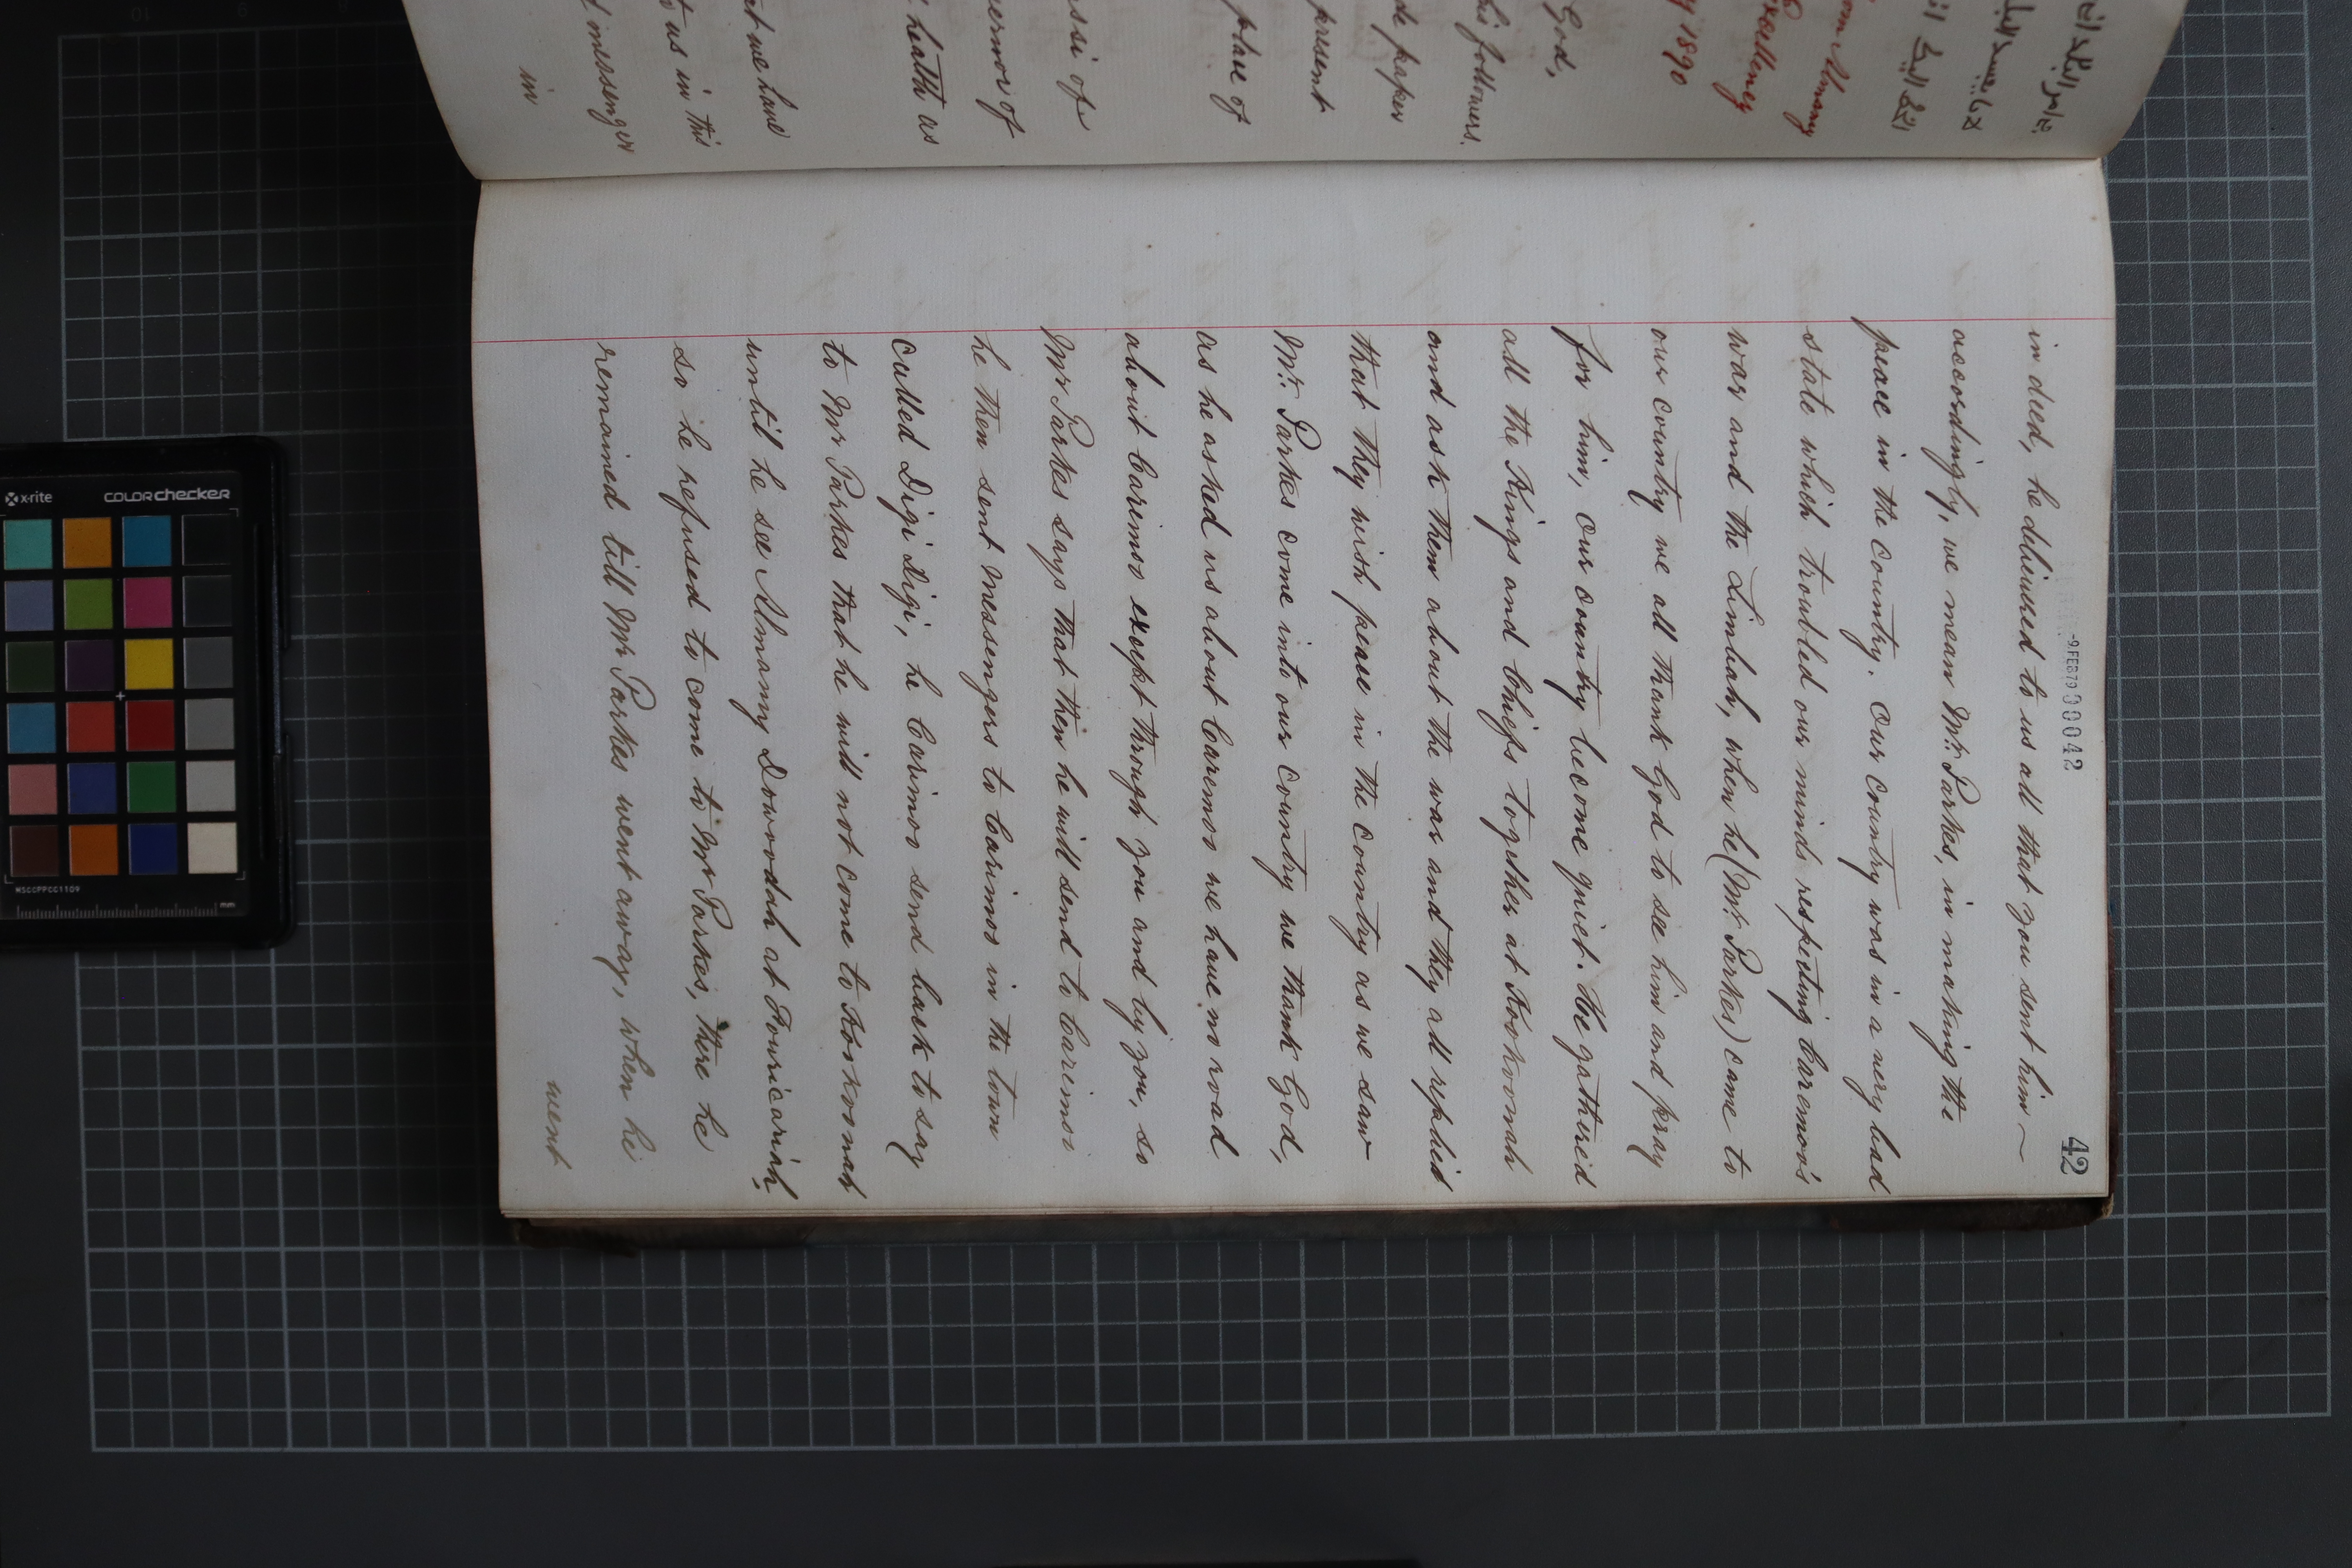 42
-9FEB79 000042
in deed, he delivered to us all that you sent him —
accordingly, we mean Mr. Parkes, in making the
peace in the country. Our country was in a very bad
state which troubled our minds respecting Caremoo's
war and the Limbah, when he (Mr. Parkes) came to
our country we all thank God to see him and pray
for him, our country become quiet. He gathered
all the Kings and Chiefs together at Fookoonah
and ask them about the war and they all replied
that they wish peace in the country as we saw
Mr. Parkes come into our country we thank God,
as he asked us about Caremoo we have no road
about Carimoo except through you and by you, so
Mr Parkes says that then he will send to Carimoo
he then sent messengers to Carimoo in the town
called Digi Digi, he Carimoo send back to say
to Mr Parkes that he will not come to Fookoonah
until he see Almamy Dowoodah at Fouricariah,
so he refused to come to Mr Parkes, there he
remained till Mr Parkes went away, when he
went
God,
his followers.
de paper
present
place of
ssi of
ernor of
health as
at we have
to us in this
d messenger
in
om Almamy
Excellency
y 1890
x-rite
colorchecker
MSCCPPCC1109
mm